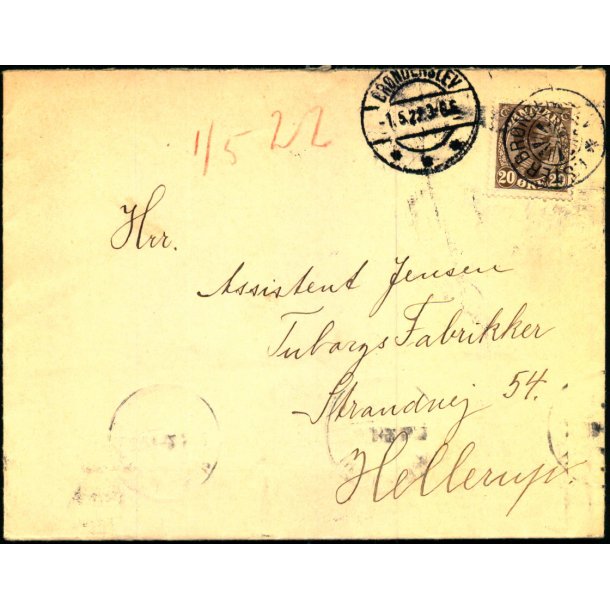 BRØNDERSLEV
1/5 22
-1.5.22.3-
20 ØRE 20
Hrr.
Assistent Jensen
Tuborgs Fabrikker
Strandvej 54.
Hellerup.